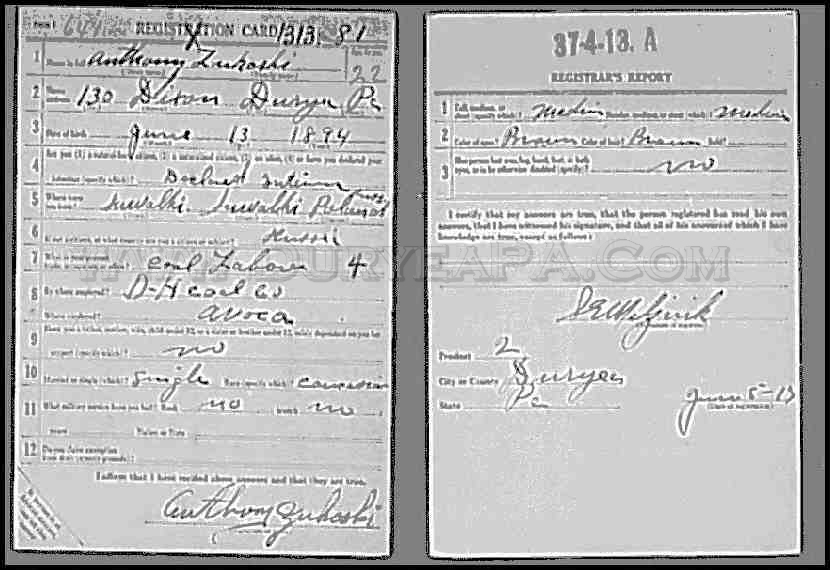 Form 1 641 REGISTRATION CARD 1313 81
1 Name in full Anthony Zukoski Age in yrs. 22
2 Home address 130 Dixon Duryea Pa
3 Date of birth June 13 1894
4 Are you (1) a natural-born citizen, (2) a naturalized citizen, (3) an alien, (4) or have you declared your
intention (specify which)? Declared Intention
5 Where were you born? Suwalki Suwalki Poland
6 If not a citizen, of what country are you a citizen or subject? Russia
7 What is your present trade, occupation, or office? Coal Laborer 4
8 By whom employed? D-H coal Co
Where employed? Avoca
9 Have you a father, mother, wife, child under 12, or a sister or brother under 12, solely dependent on you for
support (specify which)? no
10 Married or single (which)? Single Race (specify which)? Caucasian
11 What military service have you had? Rank no branch no
years Nation or State
12 Do you claim exemption from draft (specify grounds)?
I affirm that I have verified above answers and that they are true.
Anthony Zukoski
37-4-13. A
REGISTRAR'S REPORT
1 Tall, medium, or short (specify which)? Medium Slender, medium, or stout (which)? Medium
2 Color of eyes? Brown Color of hair? Brown Bald?
3 Has person lost arm, leg, hand, foot, or both eyes, or is he otherwise disabled (specify)? no
I certify that my answers are true, that the person registered has read his own
answers, that I have witnessed his signature, and that all of his answers of which I have
knowledge are true, except as follows:
WWW.DURYEAPA.COM
Precinct 2
City or County Duryea
State Pa
June 5-17